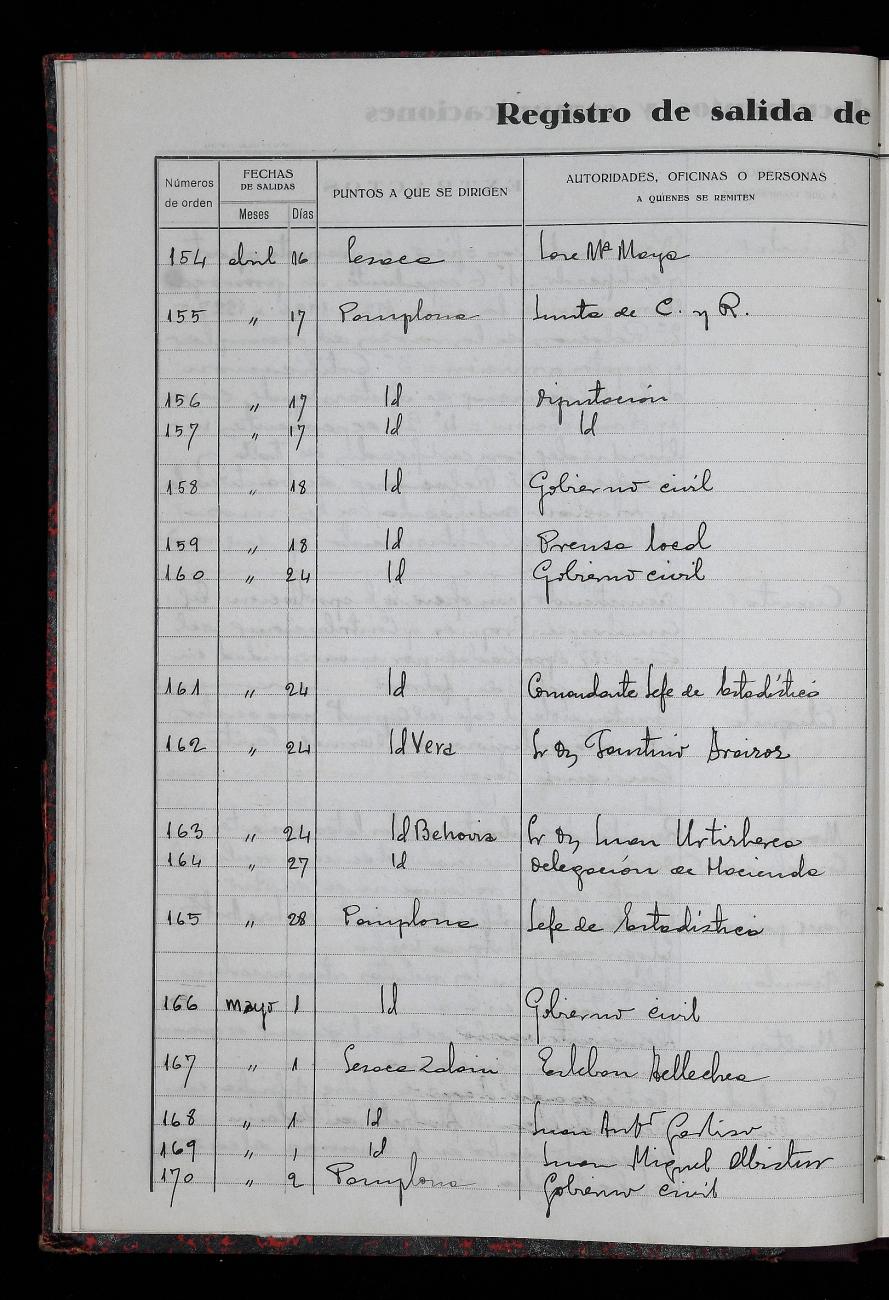 Registro de salida de
Números de orden
FECHAS DE SALIDAS
Meses Días
PUNTOS A QUE SE DIRIGEN
AUTORIDADES, OFICINAS O PERSONAS
A QUIENES SE REMITEN
154 abril 16 Lesaca Jose Mª Maya
155 " 17 Pamplona Junta de C. y R.
156 " 17 Id Diputación
157 " 17 Id Id
158 " 18 Id Gobierno civil
159 " 18 Id Prensa local
160 " 24 Id Gobierno civil
161 " 24 Id Comandante Jefe de Estadística
162 " 24 Id Vera Sr Dn Faustino
163 " 24 Id Behovia Sr Dn Juan Urtizberea
164 " 27 Id Delegación de Hacienda
165 " 28 Pamplona Jefe de Estadística
166 mayo 1 Id Gobierno civil
167 " 1 Lesaca Zalain Esteban Tellechea
168 " 1 Id Juan Antº
169 " 1 Id Juan Miguel Albistur
170 " 2 Pamplona Gobierno civil